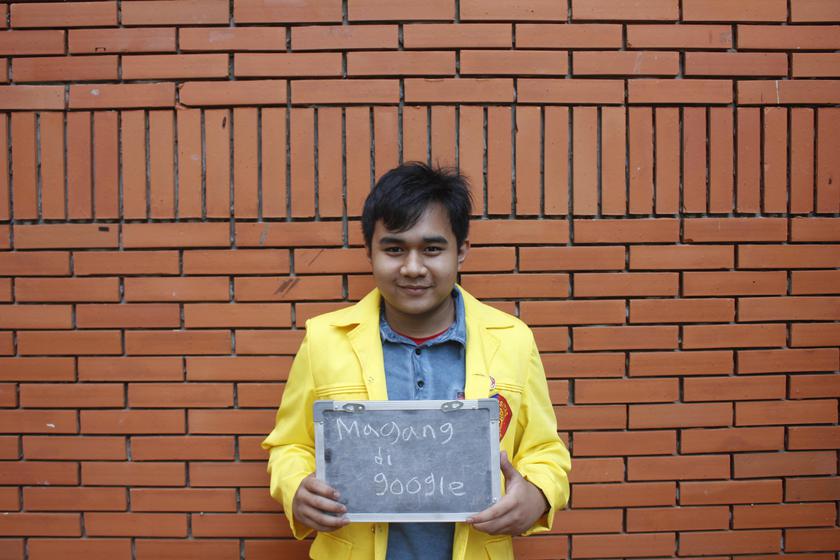 Magang
di
google